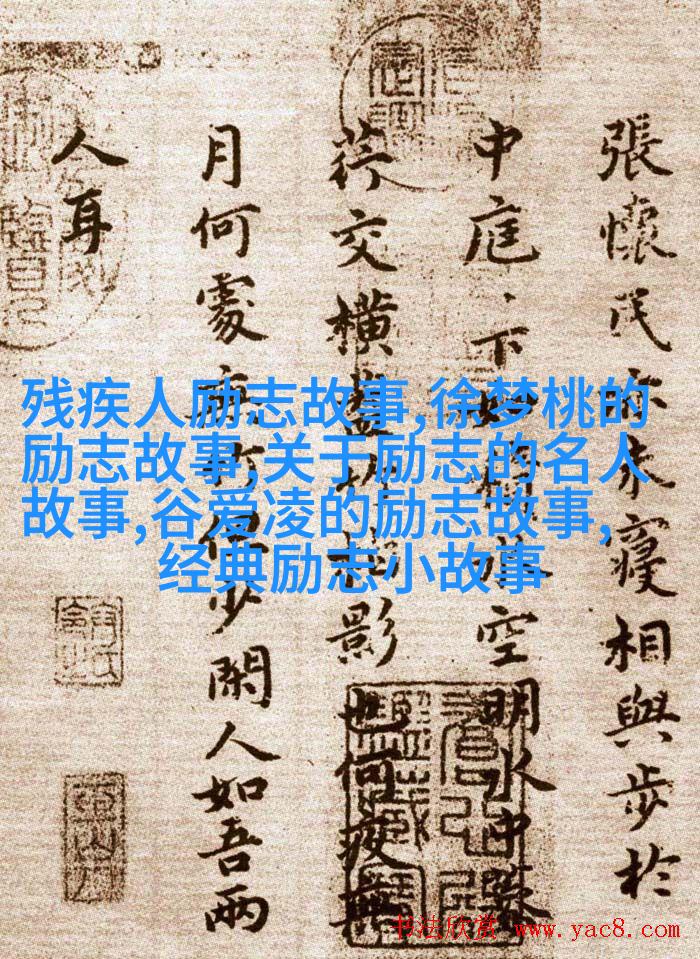 張懷民亦未寢相與步於
中庭、下如積水空明水中藻
荇交橫蓋竹柏影也何夜無
月何處無竹少閑人如吾兩
人耳
残疾人励志故事,徐梦桃的
励志故事,关于励志的名人
故事,谷爱凌的励志故事,
经典励志小故事
书法欣赏 www.yac8.com